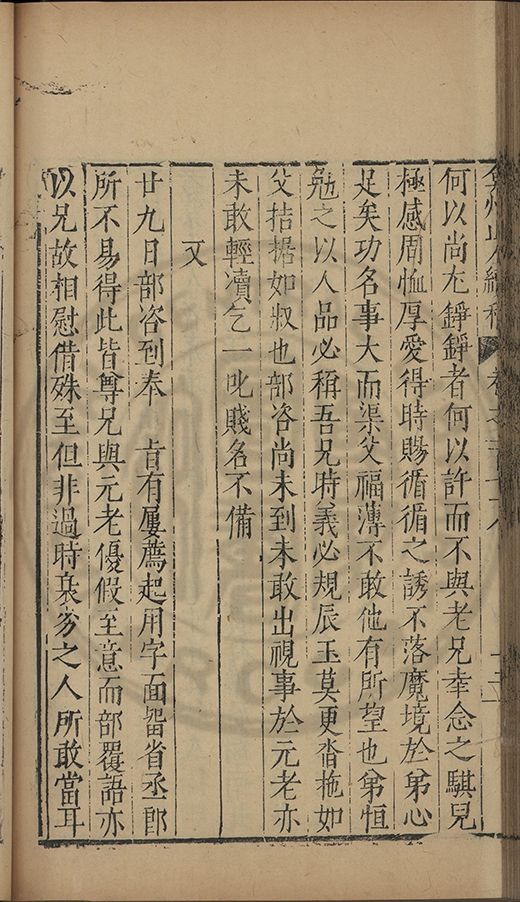 弇州山人續稿 卷之一百七十八 十二
何以尚左錚錚者何以許而不與老兄幸念之騏兒
極感周恤厚愛得時賜循循之誘不落魔境於弟心
足矣功名事大而渠父福薄不敢他有所望也弟恒
勉之以人品必稱吾兄時義必規辰玉莫更沓拖如
父拮据如叔也部咨尚未到未敢出視事於元老亦
未敢輕瀆乞一叱賤名不備
又
廿九日部咨到奉 旨有屢薦起用字面畱省丞郎
所不易得此皆尊兄與元老優假至意而部覆語亦
以兄故相慰借殊至但非過時衰劣之人所敢當耳